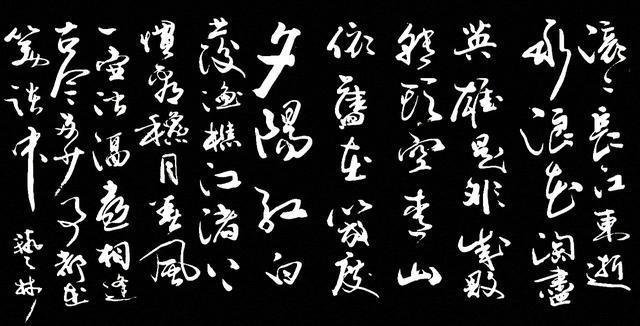 滚〻長江東逝
水浪花淘盡
英雄是非成敗
轉頭空青山
依舊在幾度
夕陽紅白
髮漁樵江渚上
慣看穐月春風
一壺濁酒喜相逢
古今多少事都在
笑談中